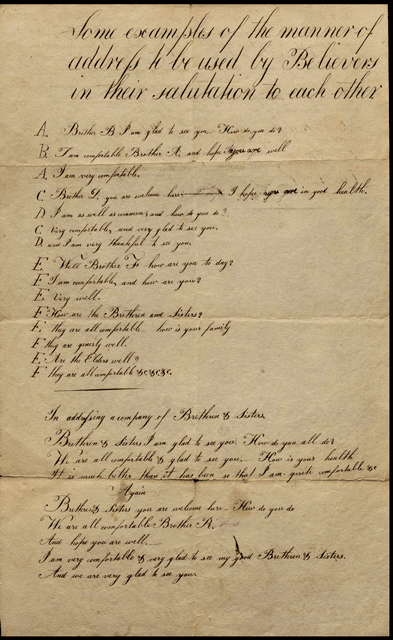 Some examples of the manner of
address to be used by Believers
in their salutation to each other
A. Brother B I am glad to see you. How do you do?
B. I am comfortable Brother A. and hope you are well
A. I am very comfortable.
C. Brother D. you are welcome here I hope you are in good health.
D. I am as well as common, and how do you do?
C. Very comfortable, and very glad to see you.
D. and I am very thankful to see you.
E. Well Brother F. how are you to day?
F. I am comfortable, and how are you?
E. Very well.
F. How are the Brethren and Sisters?
E. they are all comfortable – how is your family
F. they are generly well.
E. Are the Elders well?
F. they are all comfortable &c &c &c.
In addressing a company of Brethren & Sisters
Brethren & Sisters I am glad to see you. How do you all do?
We are all comfortable & glad to see you. – How is your health
It is much better than it has been so that I am quite comfortable &c
Again
Brethren & Sisters you are welcome here – How do you do
We are all comfortable Brother A.
And hope you are well. –
I am very comfortable & very glad to see my good Brethren & Sisters.
And we are very glad to see you.